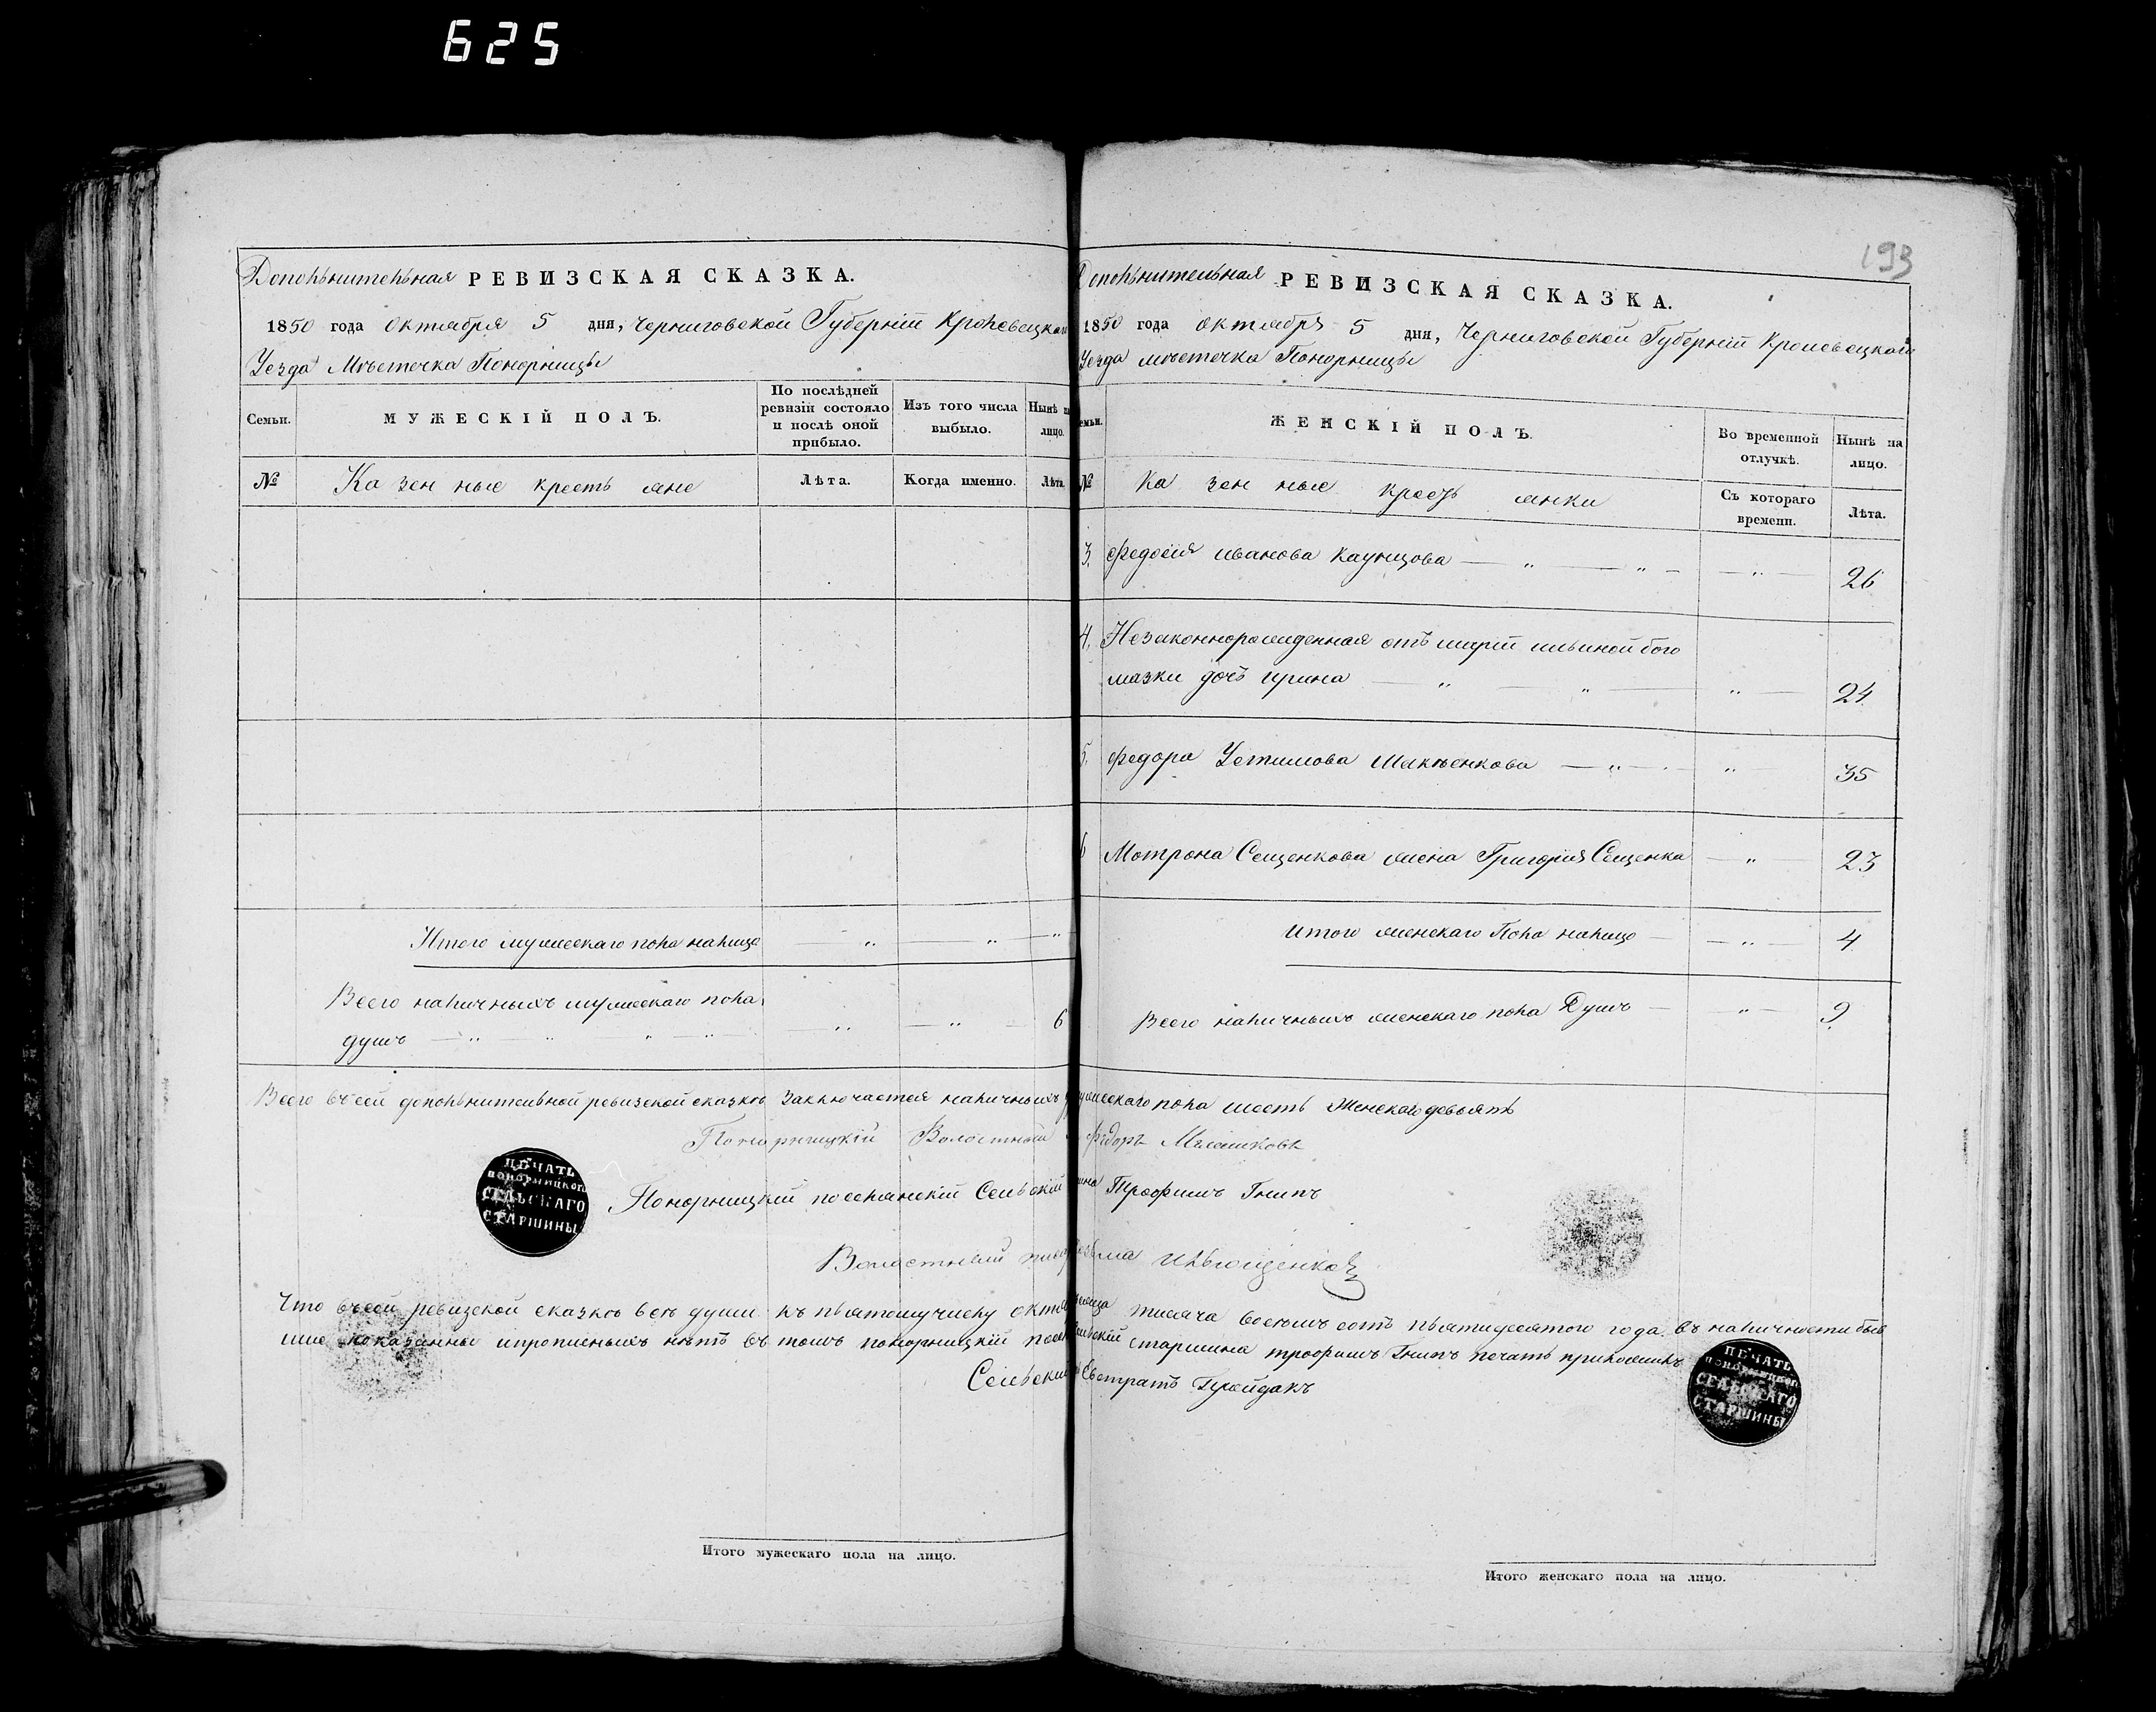 625
193
Дополнительная РЕВИЗСКАЯ СКАЗКА.
1850 года Октября 5 дня, Черниговской Губерніи Кролевецкаго
Уезда Мѣсточка Понорницы
Семьи.
МУЖЕСКІЙ ПОЛЪ.
По послѣдней ревизіи состояло и послѣ оной прибыло.
Изъ того числа выбыло.
Нынѣ на лицо.
№
Казенные крестьяне
Лѣта.
Когда именно.
Лѣта.
Итого мужескаго пола налицо „ „ „
Всего наличныхъ мужескаго пола
душъ „ „ „ „ „ „ 6
Дополнительная РЕВИЗСКАЯ СКАЗКА.
1850 года октября 5 дня, Черниговской Губерніи Кролевецкаго
Уезда мѣсточка Понорницы
Семьи.
ЖЕНСКІЙ ПОЛЪ.
Во временной отлучкѣ.
Нынѣ на лицо.
№
Казенные крестьянки
Съ котораго времени.
Лѣта.
3. Федосія иванова Каунцова „ „ „ 26
4. Незаконнорожденная отъ маріи ильиной бого
мазки дочь ирина „ „ „ 24
5. Федора Устимова „ „ 35
6 Мотрона Сещенкова жена Григорія Сещенка „ 23
итого женскаго Пола налицо „ 4
Всего наличныхъ женскаго пола Душъ „ 9
Всего въ сей дополнительной ревизской сказкѣ заключается наличныхъ мужескаго пола шесть Женскаго девять
Понорницкій Волостный Федоръ
Понорницкій поселянскій Сельскій Трофимъ Гнипъ
Волостный Ильющенко
Что въ сей ревизской сказкѣ всѣ души къ пьятому числу октя тисяча восемъ сотъ пьятидесятого года въ наличности быв
шие показанны и прописныхъ нѣтъ въ томъ понорницкій старшина трофимъ Гнипъ печать приложилъ
Сельский Евстратъ
ПЕЧАТЬ
ПОНОРНИЦКОГО
СЕЛЬСКАГО
СТАРШИНЫ
ПЕЧАТЬ
ПОНОРНИЦКОГО
СЕЛЬСКАГО
СТАРШИНЫ
Итого мужескаго пола на лицо.
Итого женскаго пола на лицо.